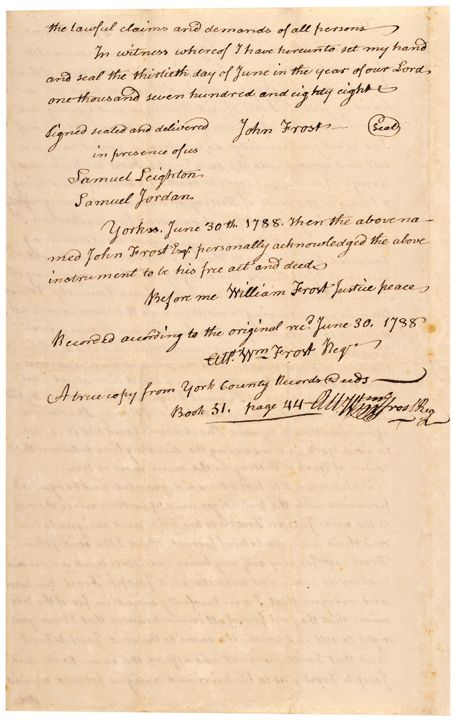 the lawful claims and demands of all persons
In witness whereof I have hereunto set my hand
and seal the thirtieth day of June in the year of our Lord
one thousand seven hundred and eighty eight
Signed sealed and delivered John Frost Seal
in presence of us
Samuel Leighton
Samuel Jordan
York ss. June 30th. 1788. Then the above na-
med John Frost Esqr. personally acknowledged the above
instrument to be his free act and deed
Before me William Frost Justice peace
Recorded according to the original recd June 30. 1788
Att. Wm Frost Regr
A true copy from York County Records Deeds
Book 51. page 44 Att Wm Frost Reg